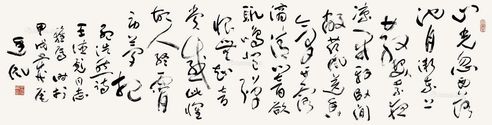 山光忽西落
池月渐东上
散发乘夜
凉开轩卧闲
敞荷风送香
气竹露
滴清响欲
取鸣琴弹
恨无知音
赏感此怀
故人终宵
劳梦想
孟浩然诗
同志
甲戌